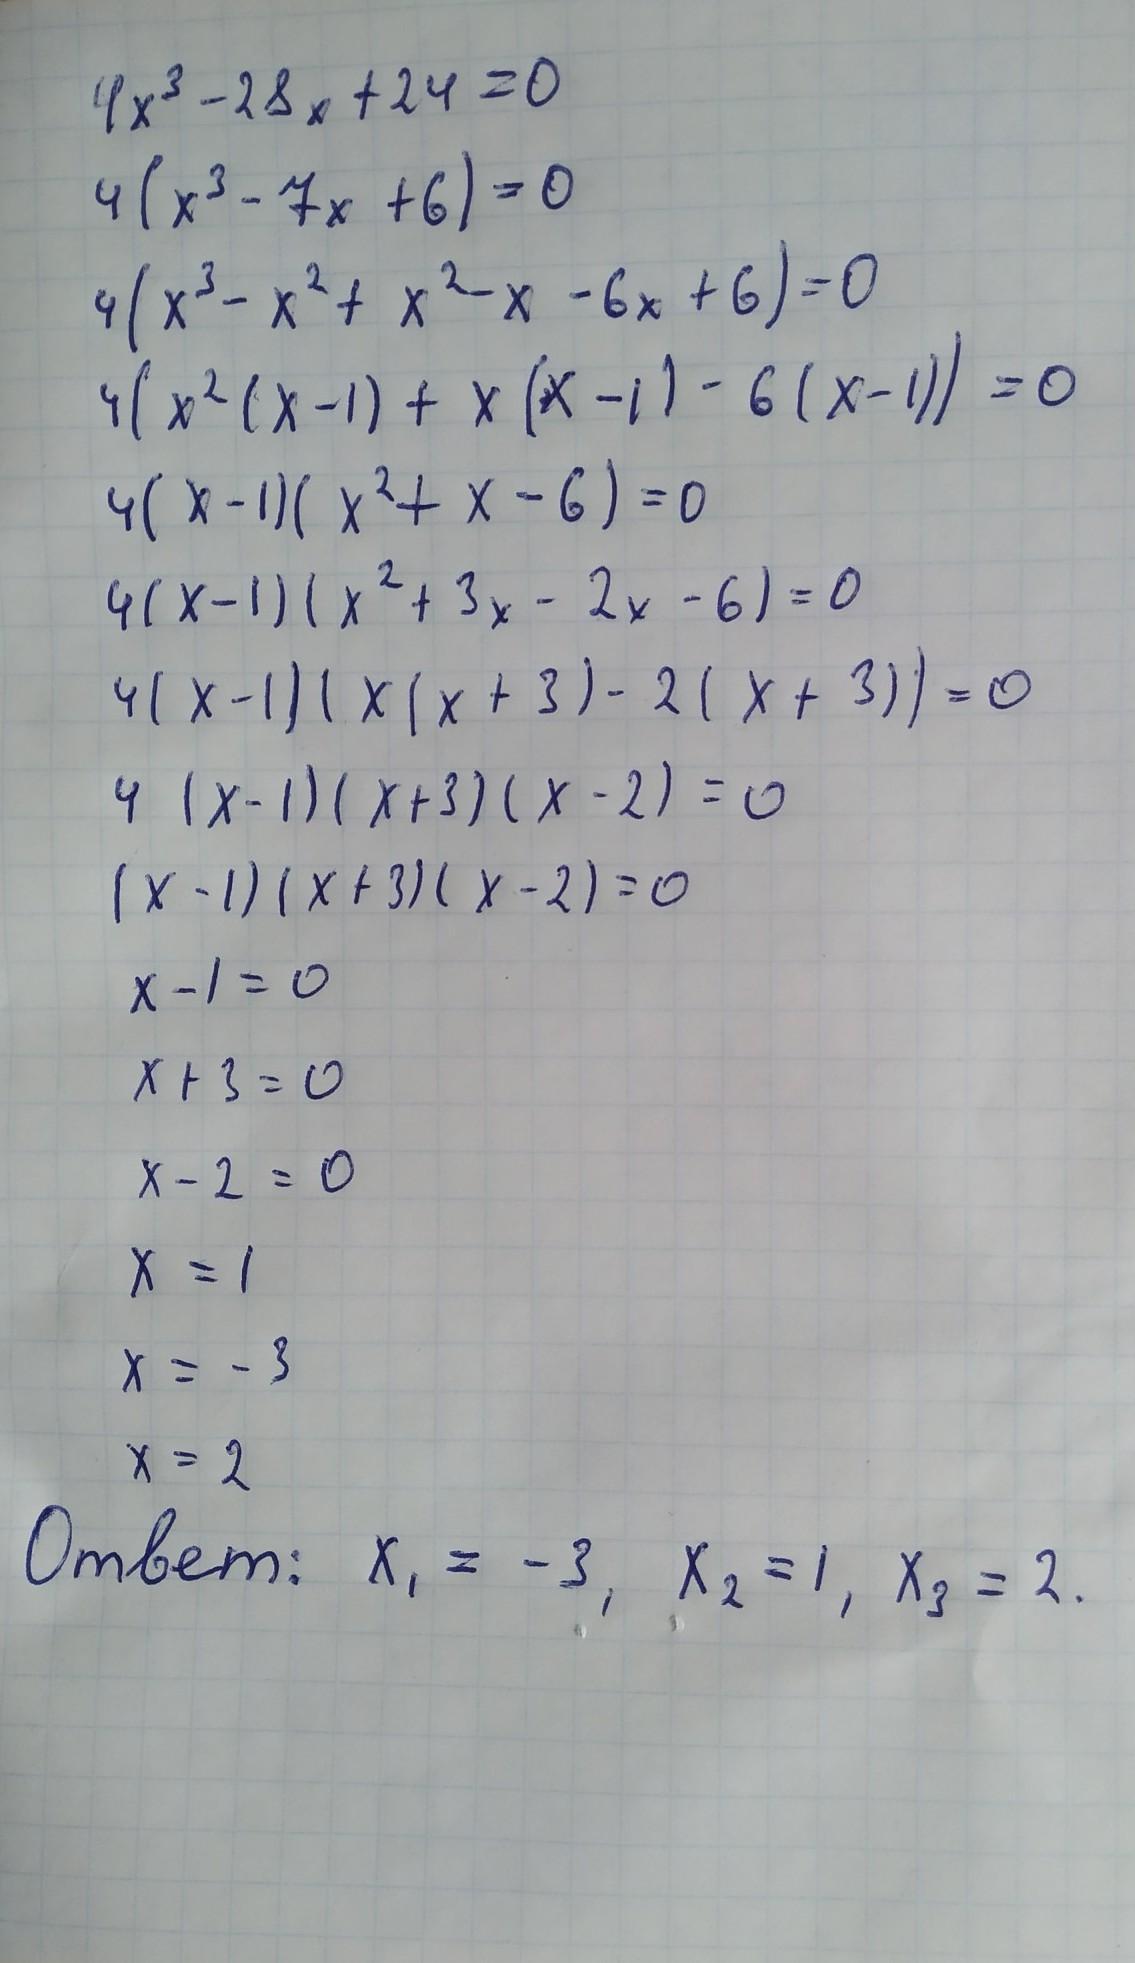 4x³ - 28x + 24 = 0
4(x³ - 7x + 6) = 0
4(x³ - x² + x² - x - 6x + 6) = 0
4(x²(x - 1) + x(x - 1) - 6(x - 1)) = 0
4(x - 1)(x² + x - 6) = 0
4(x - 1)(x² + 3x - 2x - 6) = 0
4(x - 1)(x(x + 3) - 2(x + 3)) = 0
4(x - 1)(x + 3)(x - 2) = 0
(x - 1)(x + 3)(x - 2) = 0
x - 1 = 0
x + 3 = 0
x - 2 = 0
x = 1
x = -3
x = 2
Ответ: x₁ = -3, x₂ = 1, x₃ = 2.